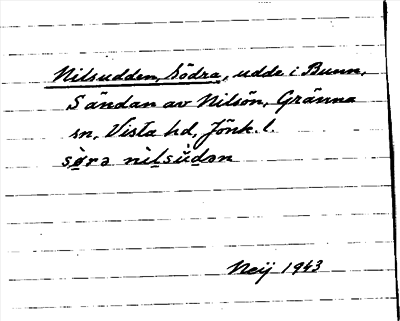 Nilsudden, Södra, udde i Bunn,
S ändan av Nilsön, Gränna
sn, Vista hd, Jönk. l.
sø̀rə nìlsùdən
Neij 1943